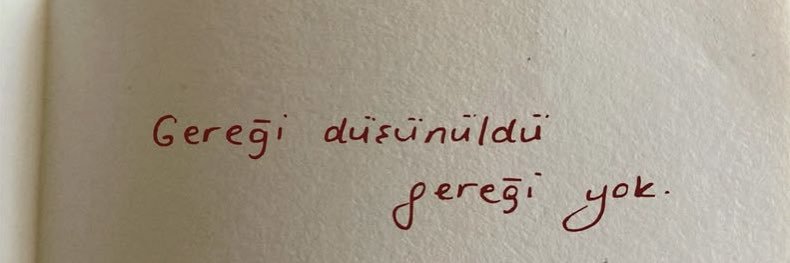 Gereği düşünüldü
gereği yok.